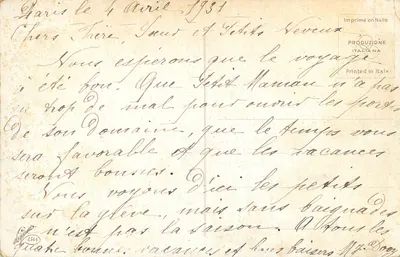 Paris le 4 Avril 1931
Chers Frère, Sœur et Petits Neveux
Nous espérons que le voyage
a été bon. Que Petit Maman n'a pas
eu trop de mal pour ouvrir les portes
de son domaine, que le temps vous
sera favorable et que les vacances
seront bonnes.
Nous voyons d'ici les petits
sur la grève, mais sans baignades
n'est pas la saison. A tous les
quatre bonnes vacances et bons baisers
Imprimé en Italie
PRODUZIONE
ITALIANA
Printed in Italy